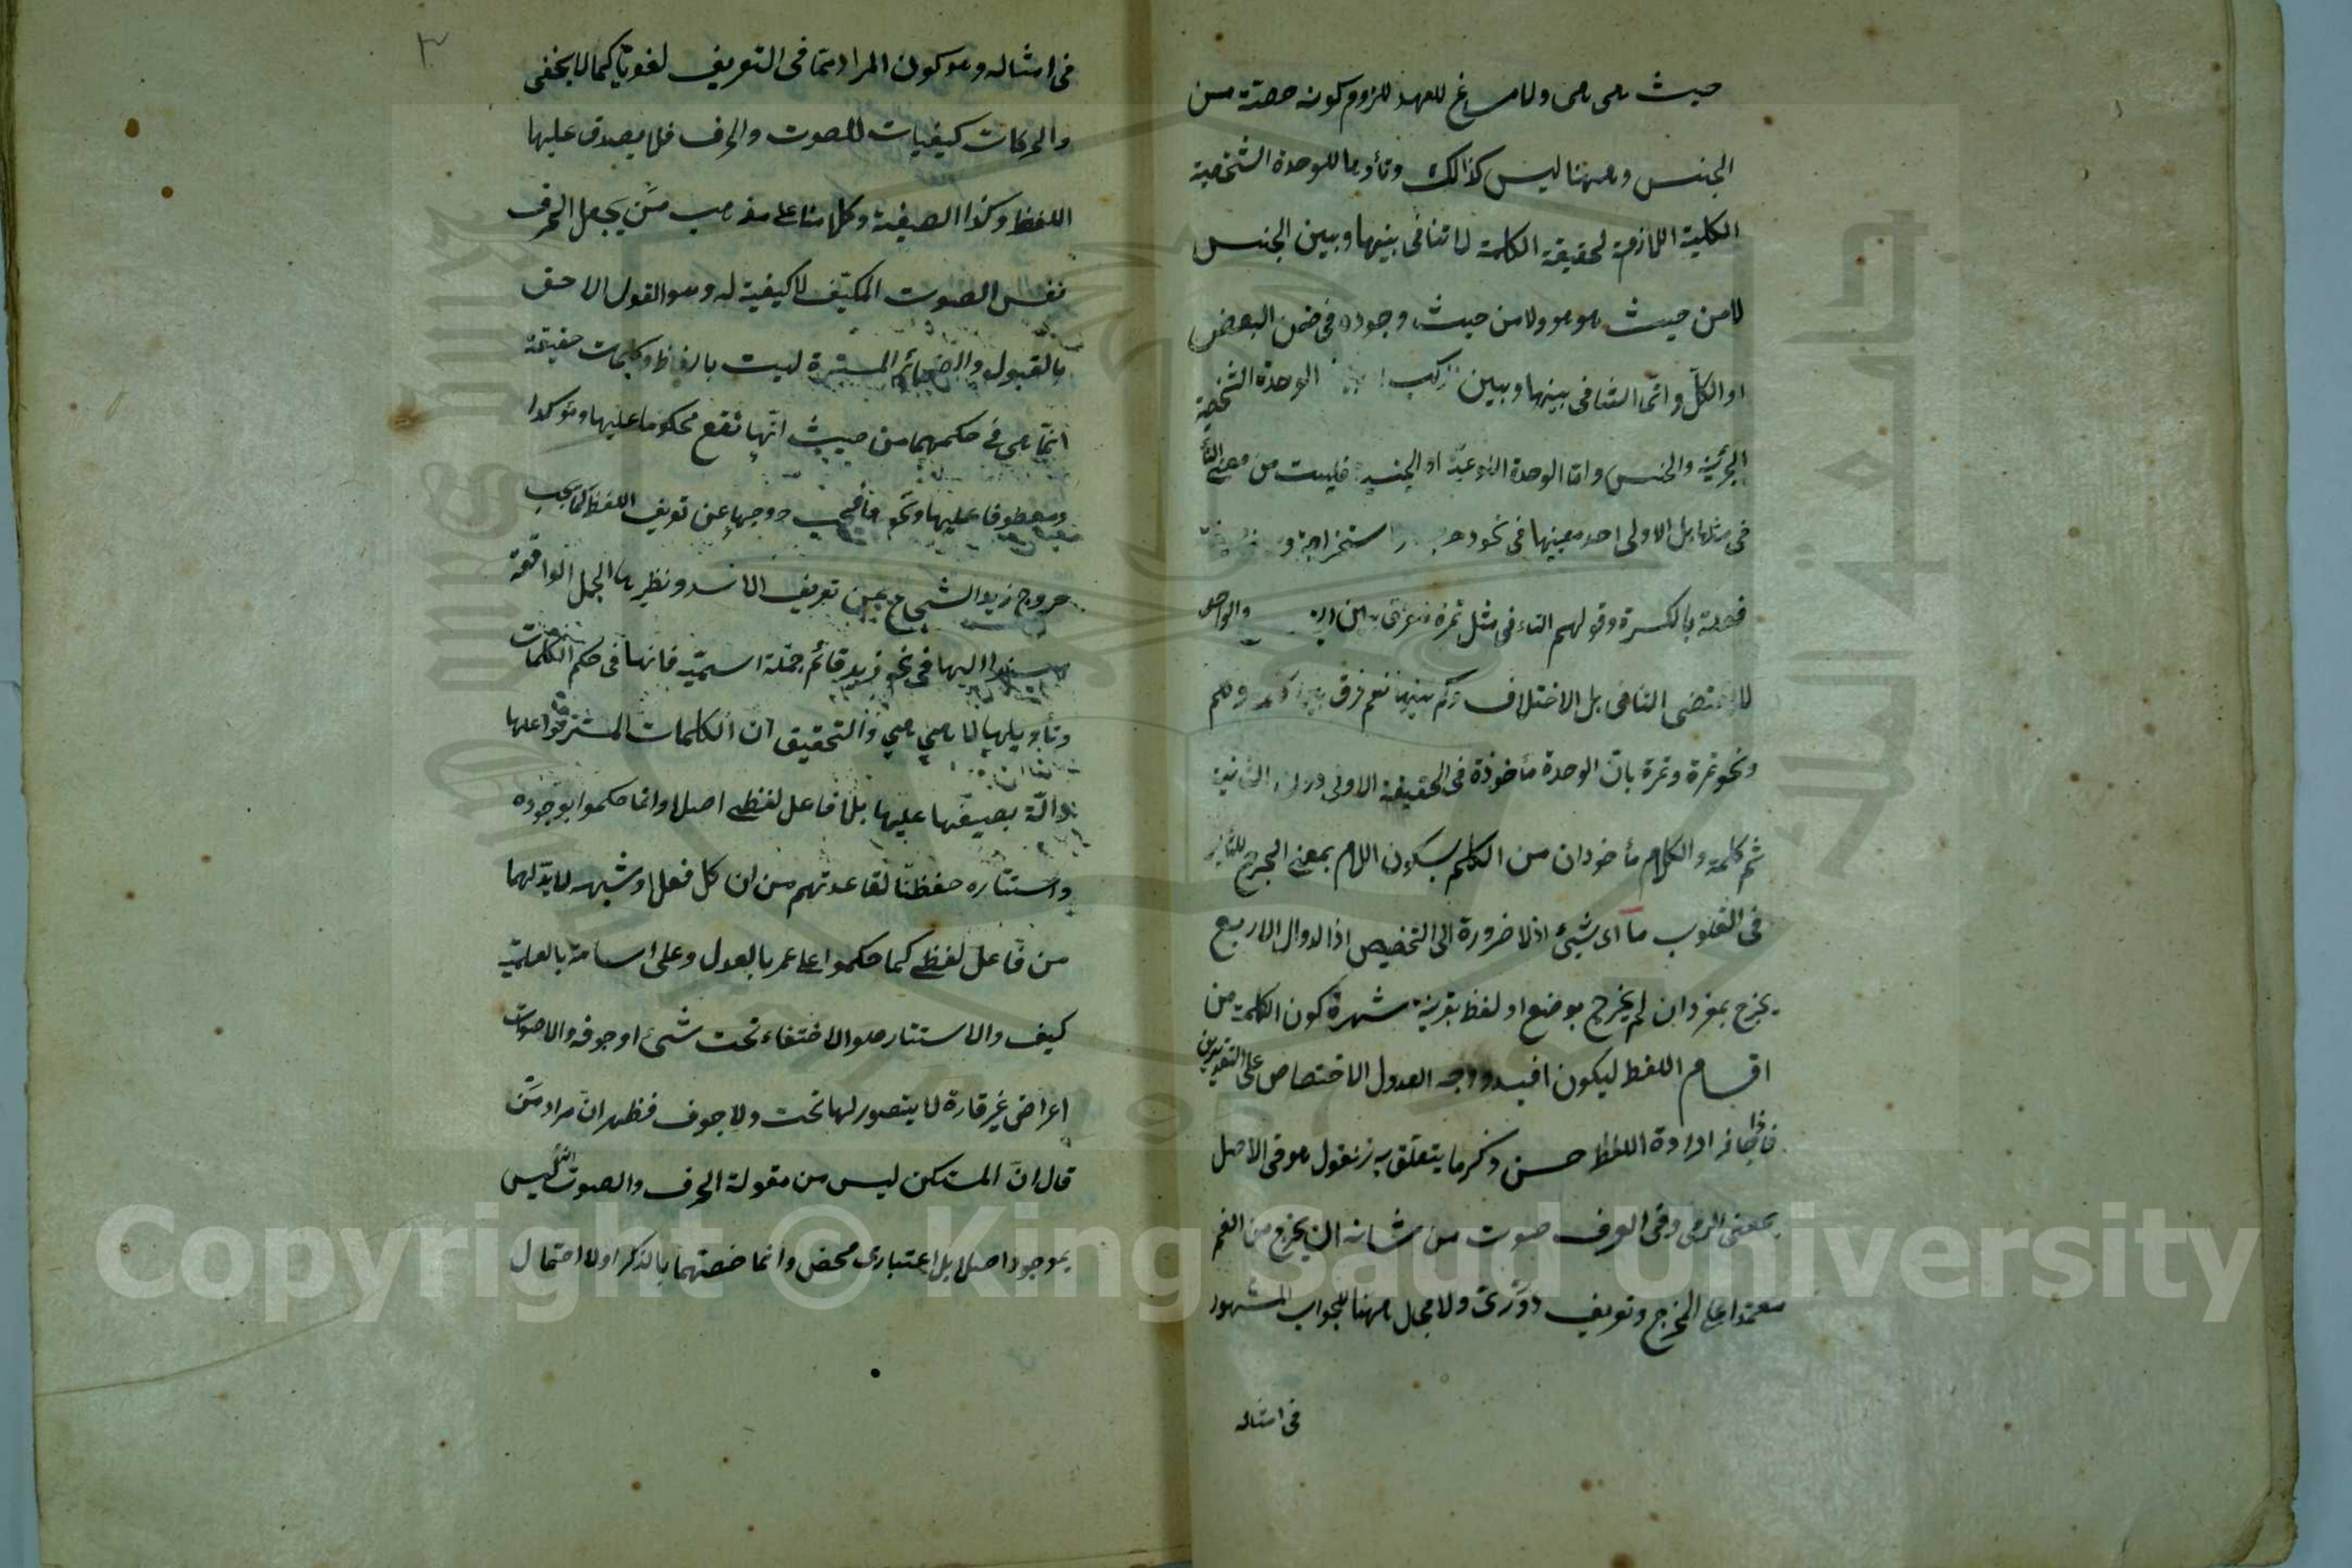 حيث هى هى ولا مساغ للعهد للزوم كونه حصة من
الجنس وههنا ليس كذالك وتأوها للوحدة الشخصية
الكلية اللازمة لحقيقة الكلمة لا تنافى بينها وبين الجنس
لا من حيث هو هو ولا من حيث وجوده فى ضمن البعض
او الكل وانما التنافى بينها وبين الوحدة الشخصية
الجزئية والجنس واما الوحدة النوعية او الجنسية فليست من معنى التأ
فى مثلها بل الاولى احد معنييها فى نحو
فعلة بالكسرة وقولهم التاء فى مثل تمرة والواحد
لا يقتضى التنافى بل الاختلاف وكم بينهما نعم فرق
ونحو تمرة وتمرة بان الوحدة مأخوذة فى الحقيقة الاولى دون الثانية
ثم كلمة والكلام مأخوذان من الكلم بسكون اللام بمعنى الجرح للتأثير
فى القلوب ما اى شيئ اذ لا ضرورة الى التخصيص اذ الدوال الاربع
يخرج بمفرد ان لم يخرج بوضع او لفظ بقرينة شهرة كون الكلمة من
اقسام اللفظ ليكون افيد ووجه العدول الاختصاص على التقديرين
فاذا جاز ارادة اللفظ حسن ذكر ما يتعلق به فنقول هو فى الاصل
بمعنى الرمى وفى العرف صوت من شانه ان يخرج من الفم
معتمدا على المخرج وتعريف دورى ولا مجال ههنا للجواب المشهور
فى امثاله
٣
فى امثاله وهو كون المراد مما فى التعريف لغويا كما لا يخفى
والحركات كيفيات للصوت والحرف فلا يصدق عليها
اللفظ وكذا الصيغة وكلامنا على مذهب من يجعل الحرف
نفس الصوت المكيف لا كيفية له وهو القول الاحق
بالقبول والضمائر المستترة ليست بالفاظ وكلمات حقيقة
انما هى فى حكمهما من حيث انها تقع محكوما عليها ومؤكدا
ومعطوفا عليها ونحوها فيجب خروجها عن تعريف اللفظ كما يجب
خروج زيد الشجاع عن تعريف الاسد ونظيرها الجمل الواقعة
مسندا اليها فى نحو زيد قائم جملة اسمية فانها فى حكم الكلمات
وتأويلها لا هى هى والتحقيق ان الكلمات المستتر فواعلها
دالة بصيغها عليها بلا فاعل لفظى اصلا وانما حكموا بوجوده
واستتاره حفظا لقاعدتهم من ان كل فعل او شبهه لا بد لهما
من فاعل لفظى كما حكموا على عمر بالعدل وعلى اسامة بالعلمية
كيف والاستتار هو الاختفاء تحت شىء او جوفه والاصوات
اعراض غير قارة لا يتصور لها تحت ولا جوف فظهر ان مراد من
قال ان المستكن ليس من مقولة الحرف والصوت انه ليس
بموجود اصلا بل اعتبارى محض وانما خصتهما بالذكر اولا احتمال
Copyright © King Saud University